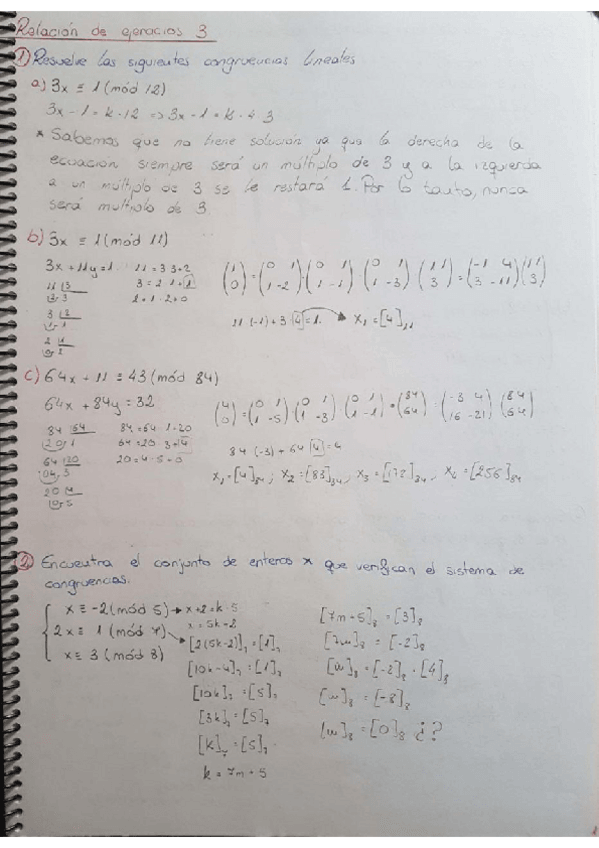 Relación de ejercicios 3
① Resuelve las siguientes congruencias lineales
a) 3x ≡ 1 (mód 12)
3x - 1 = k · 12 => 3x - 1 = k · 4 · 3
* Sabemos que no tiene solución ya que la derecha de la
ecuación siempre será un múltiplo de 3 y a la izquierda
a un múltiplo de 3 se le restará 1. Por lo tanto, nunca
será multiplo de 3
b) 3x ≡ 1 (mód 11)
3x + 11y = 1
11 = 3·3+2
3 = 2·1+1
2 = 1·2+0
(1 0) = (0 1 1 -2) · (0 1 1 -1) (0 1 1 -3) (11 3) = (-1 4 3 -11) (11 3)
11·(-1) + 3·4 = 1 → x₁ = [4]₁₁
c) 64x + 11 ≡ 43 (mód 84)
64x + 84y = 32
84 = 64·1+20
64 = 20·3+4
20 = 4·5+0
(4 0) = (0 1 1 -5) (0 1 1 -3) (0 1 1 -1) (84 64) = (-3 4 16 -21) (84 64)
84·(-3) + 64·4 = 4
x₁ = [4]₈₄ ; x₂ = [83]₈₄, x₃ = [172]₈₄, x₄ = [256]₈₄
② Encuentra el conjunto de enteros x que verifican el sistema de
congruencias.
x ≡ -2 (mód 5) → x+2 = k·5
x = 5k-2
2x ≡ 1 (mód 7) → [2(5k-2)]₇ = [1]₇
x ≡ 3 (mód 8)
[10k-4]₇ = [1]₇
[10k]₇ = [5]₇
[3k]₇ = [5]₇
[k]₇ = [5]₇
k = 7m+5
[7m+5]₈ = [3]₈
[7m]₈ = [-2]₈
[m]₈ = [-2]₈ · [4]₈
[m]₈ = [-8]₈
[m]₈ = [0]₈ ¿?